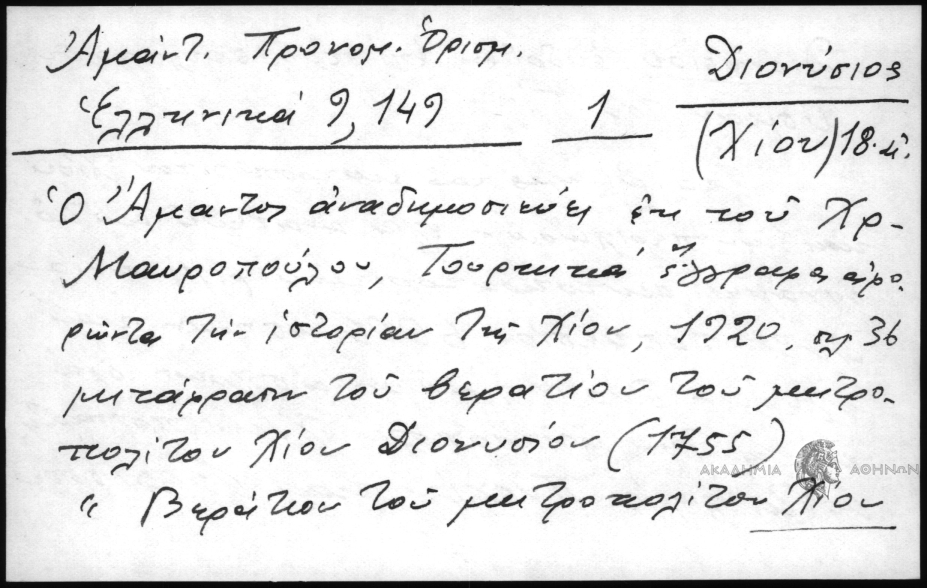 Ἀμάντ. Προνομ. Ὁρισμ.
Διονύσιος
Ἑλληνικά 9, 149
1
(Χίου) 18. αἰ.
Ὁ Ἄμαντος ἀναδημοσιεύει ἐκ τοῦ Χρ.
Μαυροπούλου, Τουρκικά ἔγγραφα ἀφο-
ρῶντα τὴν ἱστορίαν τῆς Χίου, 1920, σελ 36
μετάφρασιν τοῦ βερατίου τοῦ μητρο-
πολίτου Χίου Διονυσίου (1755)
ΑΚΑΔΗΜΙΑ ΑΘΗΝΩΝ
“ Βεράτιον τοῦ μητροπολίτου Χίου